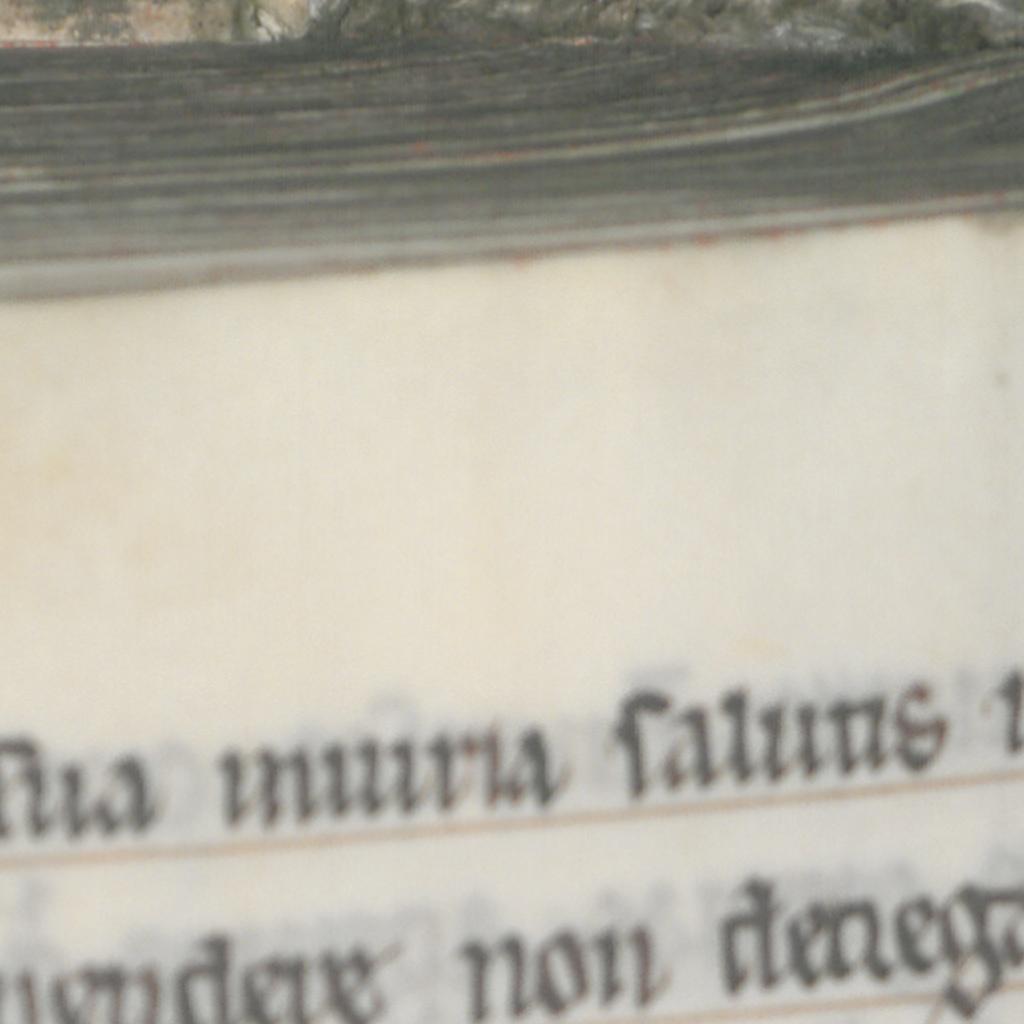 sua iniuria saluus
uendere non denega